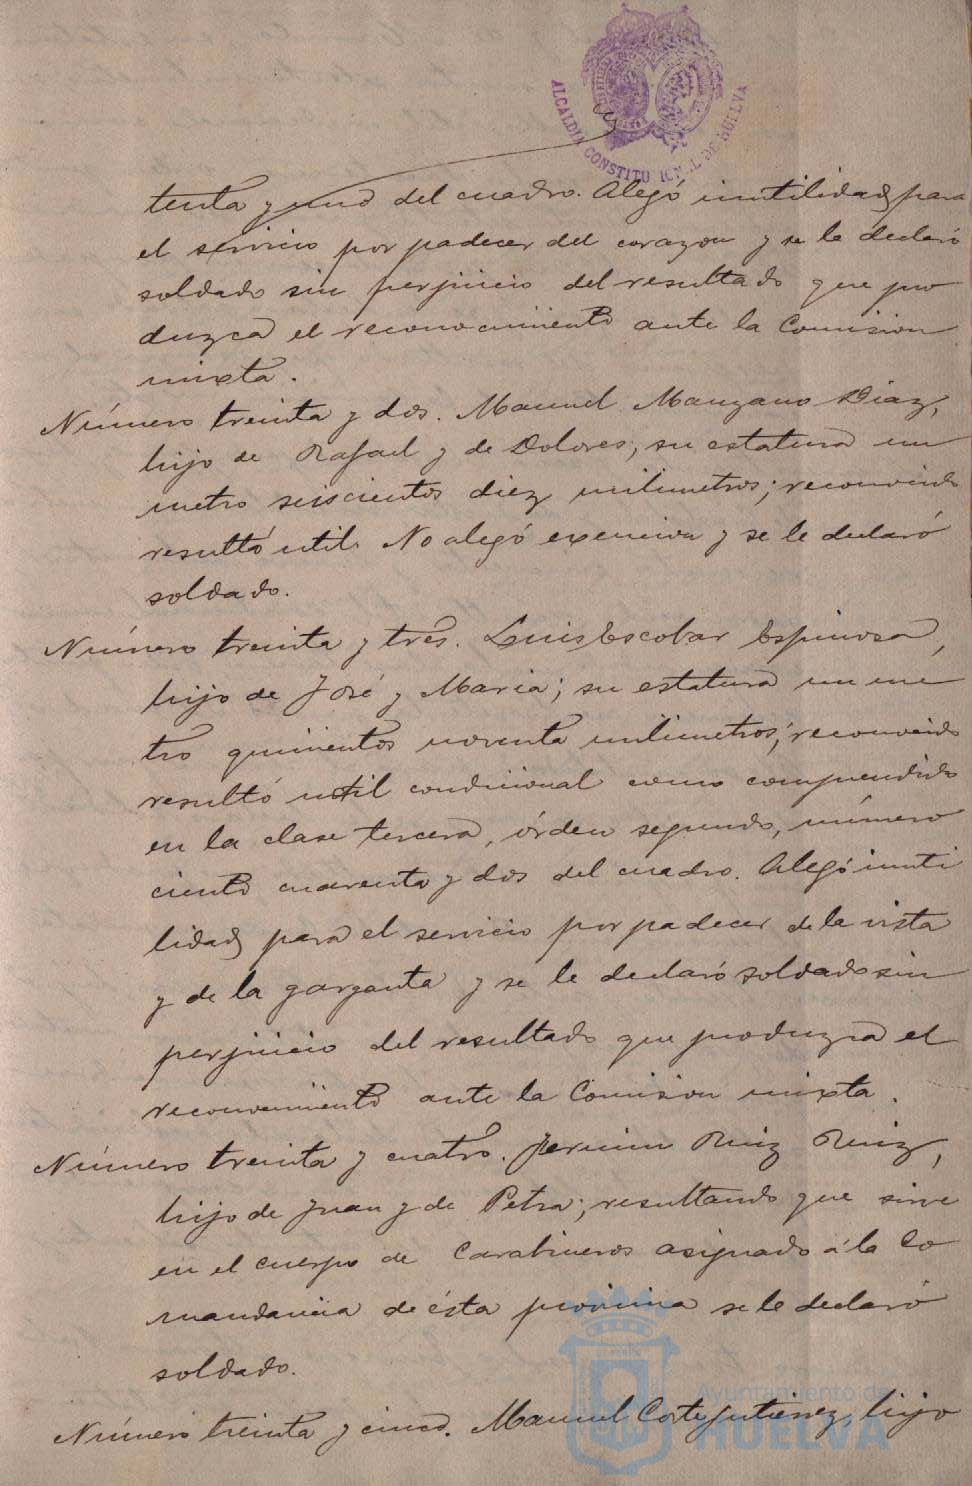 ALCALDIA CONSTITUCIONAL DE HUELVA
tenta y uno del cuadro. Alegó inutilidad para
el servicio por padecer del corazon y se le declaró
soldado sin perjuicio del resultado que pro
duzca el reconocimiento ante la Comision
mixta.
Número treinta y dos. Manuel Manzano Diaz,
hijo de Rafael y de Dolores; su estatura un
metro seiscientos diez milimetros; reconocido
resultó util. No alegó exencion y se le declaró
soldado.
Número treinta y tres. Luis Escobar Espinosa,
hijo de José y Maria; su estatura un me
tro quinientos noventa milimetros; reconocido
resultó util condicional como comprendido
en la clase tercera, órden segundo, número
ciento cuarenta y dos del cuadro. Alegó inuti
lidad para el servicio por padecer de la vista
y de la garganta y se le declaró soldado sin
perjuicio del resultado que produzca el
reconocimiento ante la Comision mixta.
Número treinta y cuatro. Fermin Ruiz Ruiz,
hijo de Juan y de Petra; resultando que sirve
en el cuerpo de Carabineros asignado á la Co
mandancia de ésta provincia se le declaró
soldado.
Número treinta y cinco. Manuel Corte Gutierrez, hijo
Ayuntamiento de
HUELVA